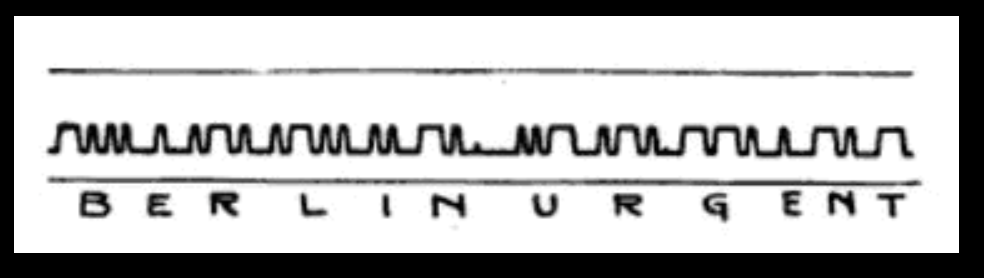 BERLIN URGENT